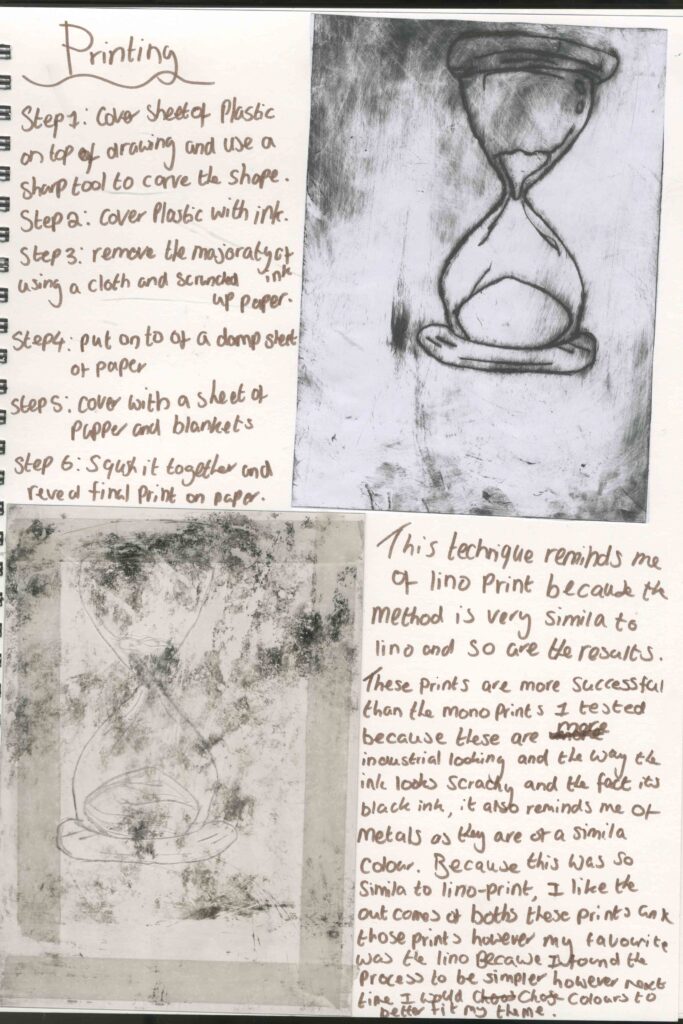 Printing
Step 1: cover sheet of Plastic
on top of drawing and use a
sharp tool to carve the shape.
Step 2: cover Plastic with ink.
Step 3: remove the majoraty of
ink
using a cloth and scrunched
up paper.
Step 4: put on to of a damp sheet
of paper
Step 5: cover with a sheet of
papper and blankets
Step 6: Squish it together and
reveal final Print on paper.
This technique reminds me
of lino print because the
method is very simila to
lino and so are the results.
These prints are more successful
than the mono prints I tested
because these are more
industrial looking and the way the
ink looks scrachy and the fact its
black ink, it also reminds me of
metals as they are of a simila
colour. Because this was so
simila to lino-print, I like the
out comes of boths these prints and
those prints however my favourite
was the lino Because I found the
process to be simpler however next
time I would Chose Colours to
better fit my theme.